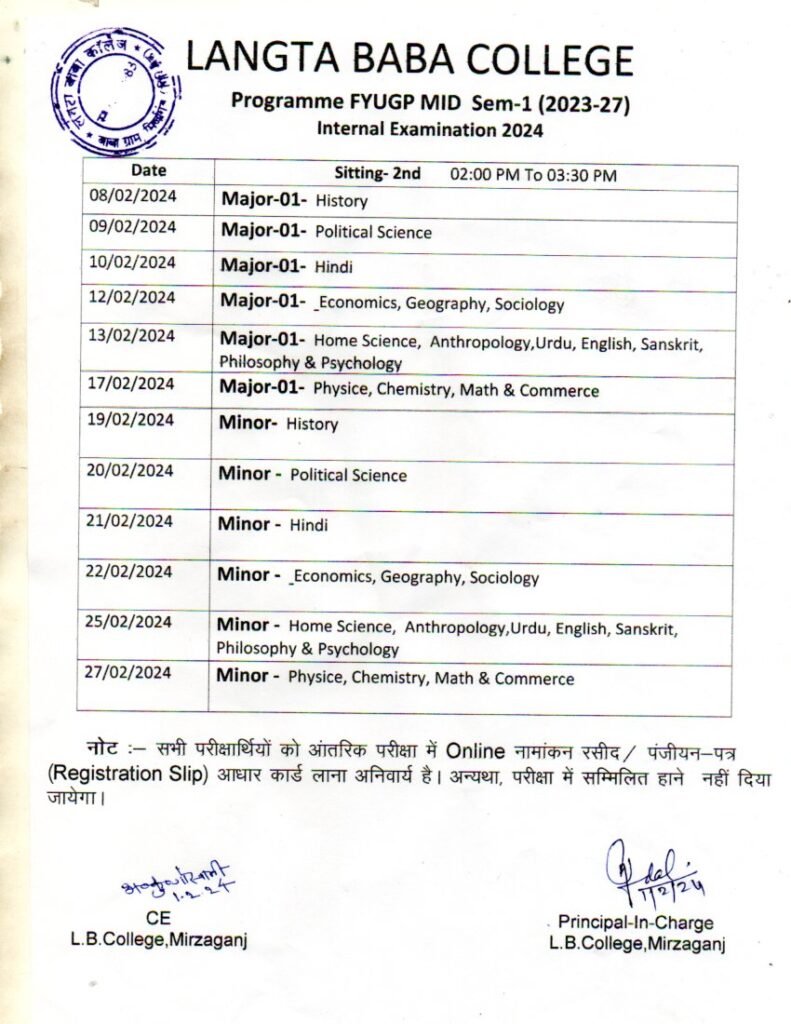 लंगटा बाबा कॉलेज
LANGTA BABA COLLEGE
Programme FYUGP MID Sem-1 (2023-27)
Internal Examination 2024
Date Sitting- 2nd 02:00 PM To 03:30 PM
08/02/2024 Major-01- History
09/02/2024 Major-01- Political Science
10/02/2024 Major-01- Hindi
12/02/2024 Major-01- _Economics, Geography, Sociology
13/02/2024 Major-01- Home Science, Anthropology,Urdu, English, Sanskrit,
Philosophy & Psychology
17/02/2024 Major-01- Physice, Chemistry, Math & Commerce
19/02/2024 Minor- History
20/02/2024 Minor - Political Science
21/02/2024 Minor - Hindi
22/02/2024 Minor - _Economics, Geography, Sociology
25/02/2024 Minor - Home Science, Anthropology,Urdu, English, Sanskrit,
Philosophy & Psychology
27/02/2024 Minor - Physice, Chemistry, Math & Commerce
नोट :– सभी परीक्षार्थियों को आंतरिक परीक्षा में Online नामांकन रसीद / पंजीयन–पत्र
(Registration Slip) आधार कार्ड लाना अनिवार्य है। अन्यथा, परीक्षा में सम्मिलित हाने नहीं दिया
जायेगा।
1.2.24
1/2/24
CE
Principal-In-Charge
L.B.College,Mirzaganj
L.B.College,Mirzaganj